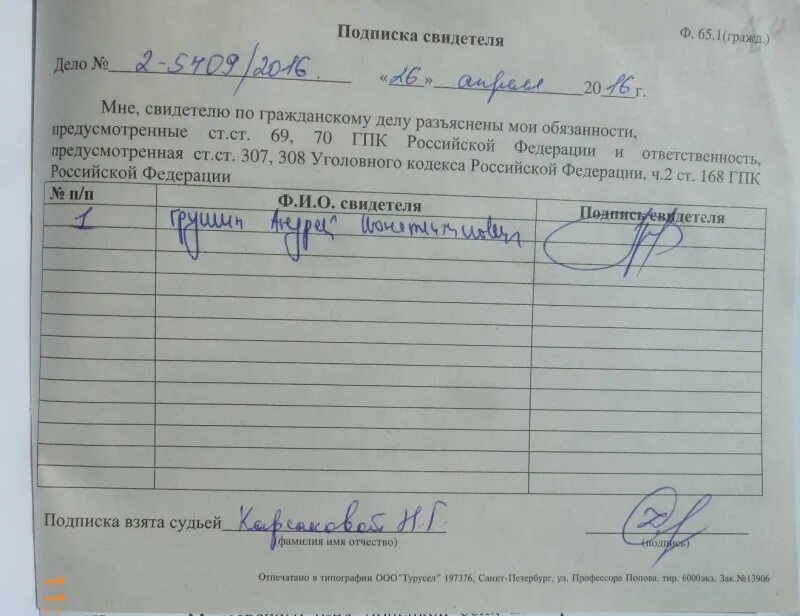 Подписка свидетеля
Ф. 65.1(гражд.)
Дело № 2-5409/2016 «26» апреля 2016 г.
Мне, свидетелю по гражданскому делу разъяснены мои обязанности,
предусмотренные ст.ст. 69, 70 ГПК Российской Федерации и ответственность,
предусмотренная ст.ст. 307, 308 Уголовного кодекса Российской Федерации, ч.2 ст. 168 ГПК
Российской Федерации
№ п/п Ф.И.О. свидетеля Подпись свидетеля
1 Грушин Андрей Константинович
Подписка взята судьей Карсаковой Н.Г.
(фамилия имя отчество) (подпись)
Отпечатано в типографии ООО"Турусел" 197376, Санкт-Петербург, ул. Профессора Попова. тир. 6000экз. Зак.№13906